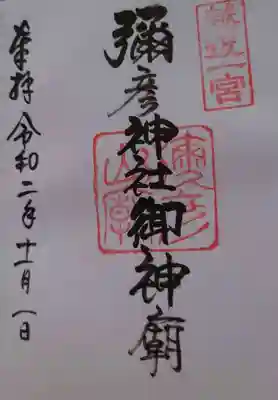 越後一宮
彌彦神社御神廟
奉拝 令和二年十一月一日